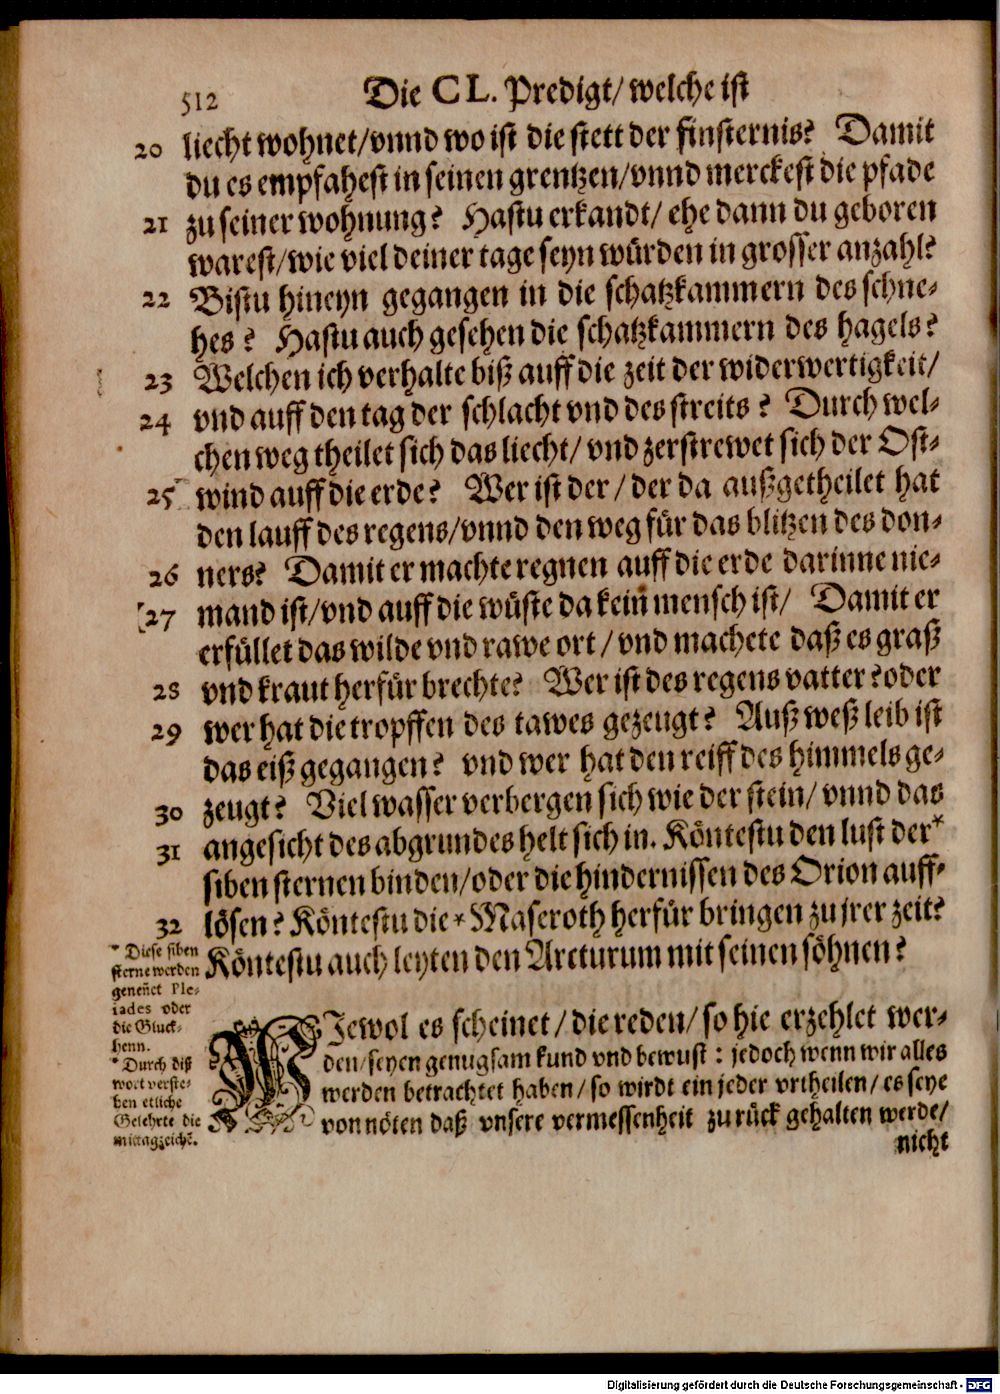 512 Die CL. Predigt/ welche ist
20 liecht wohnet/vnnd wo ist die stett der finsternis? Damit
du es empfahest in seinen grentzen/vnnd merckest die pfade
21 zu seiner wohnung? Hastu erkandt/ ehe dann du geboren
warest/wie viel deiner tage seyn würden in grosser anzahl?
22 Bistu hineyn gegangen in die schatzkammern des schne-
hes? Hastu auch gesehen die schatzkammern des hagels?
23 Welchen ich verhalte biß auff die zeit der widerwertigkeit/
24 vnd auff den tag der schlacht vnd des streits? Durch wel-
chen weg theilet sich das liecht/ vnd zerstrewet sich der Ost-
25 wind auff die erde? Wer ist der/ der da außgetheilet hat
den lauff des regens/vnnd den weg für das blitzen des don-
26 ners? Damit er machte regnen auff die erde darinne nie-
27 mand ist/vnd auff die wüste da kein mensch ist/ Damit er
erfüllet das wilde vnd rawe ort/ vnd machete daß es graß
28 vnd kraut herfür brechte? Wer ist des regens vatter? oder
29 wer hat die tropffen des tawes gezeugt? Auß weß leib ist
das eiß gegangen? vnd wer hat den reiff des himmels ge-
30 zeugt? Viel wasser verbergen sich wie der stein/ vnnd das
31 angesicht des abgrundes helt sich in. Köntestu den lust der*
siben sternen binden/oder die hindernissen des Orion auff-
32 lösen? Köntestu die * Maseroth herfür bringen zu jrer zeit?
Köntestu auch leyten den Arcturum mit seinen söhnen?
* Diese siben
sterne werden
geneñet Ple-
iades oder
die Gluck-
henn.
* Durch diß
wort verste-
hen etliche
Gelehrte die
mittagzeichẽ.
WJewol es scheinet/ die reden/ so hie erzehlet wer-
den/seyen genugsam kund vnd bewust: jedoch wenn wir alles
werden betrachtet haben/ so wirdt ein jeder vrtheilen/ es seye
von nöten daß vnsere vermessenheit zu rück gehalten werde/
nicht
Digitalisierung gefördert durch die Deutsche Forschungsgemeinschaft - DFG